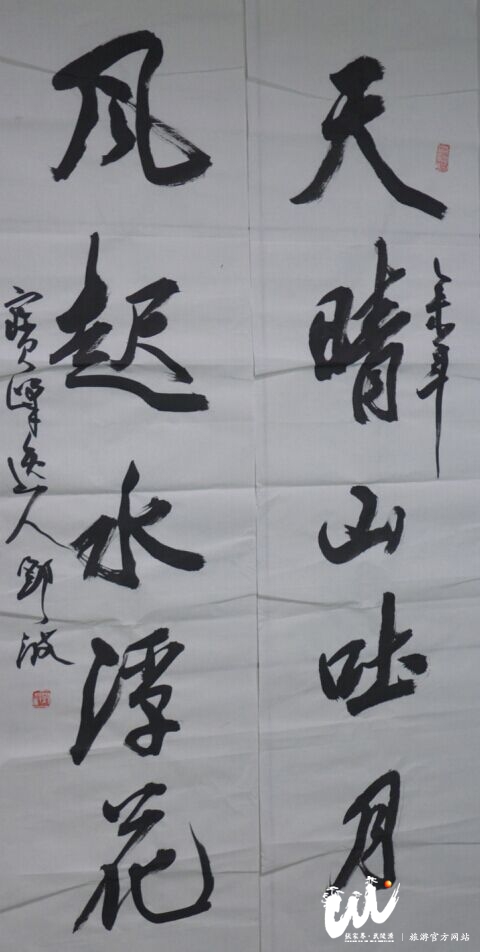 天晴山吐月
风起水浮花
寶峰逸人鄧波
张家界·武陵源 | 旅游官方网站